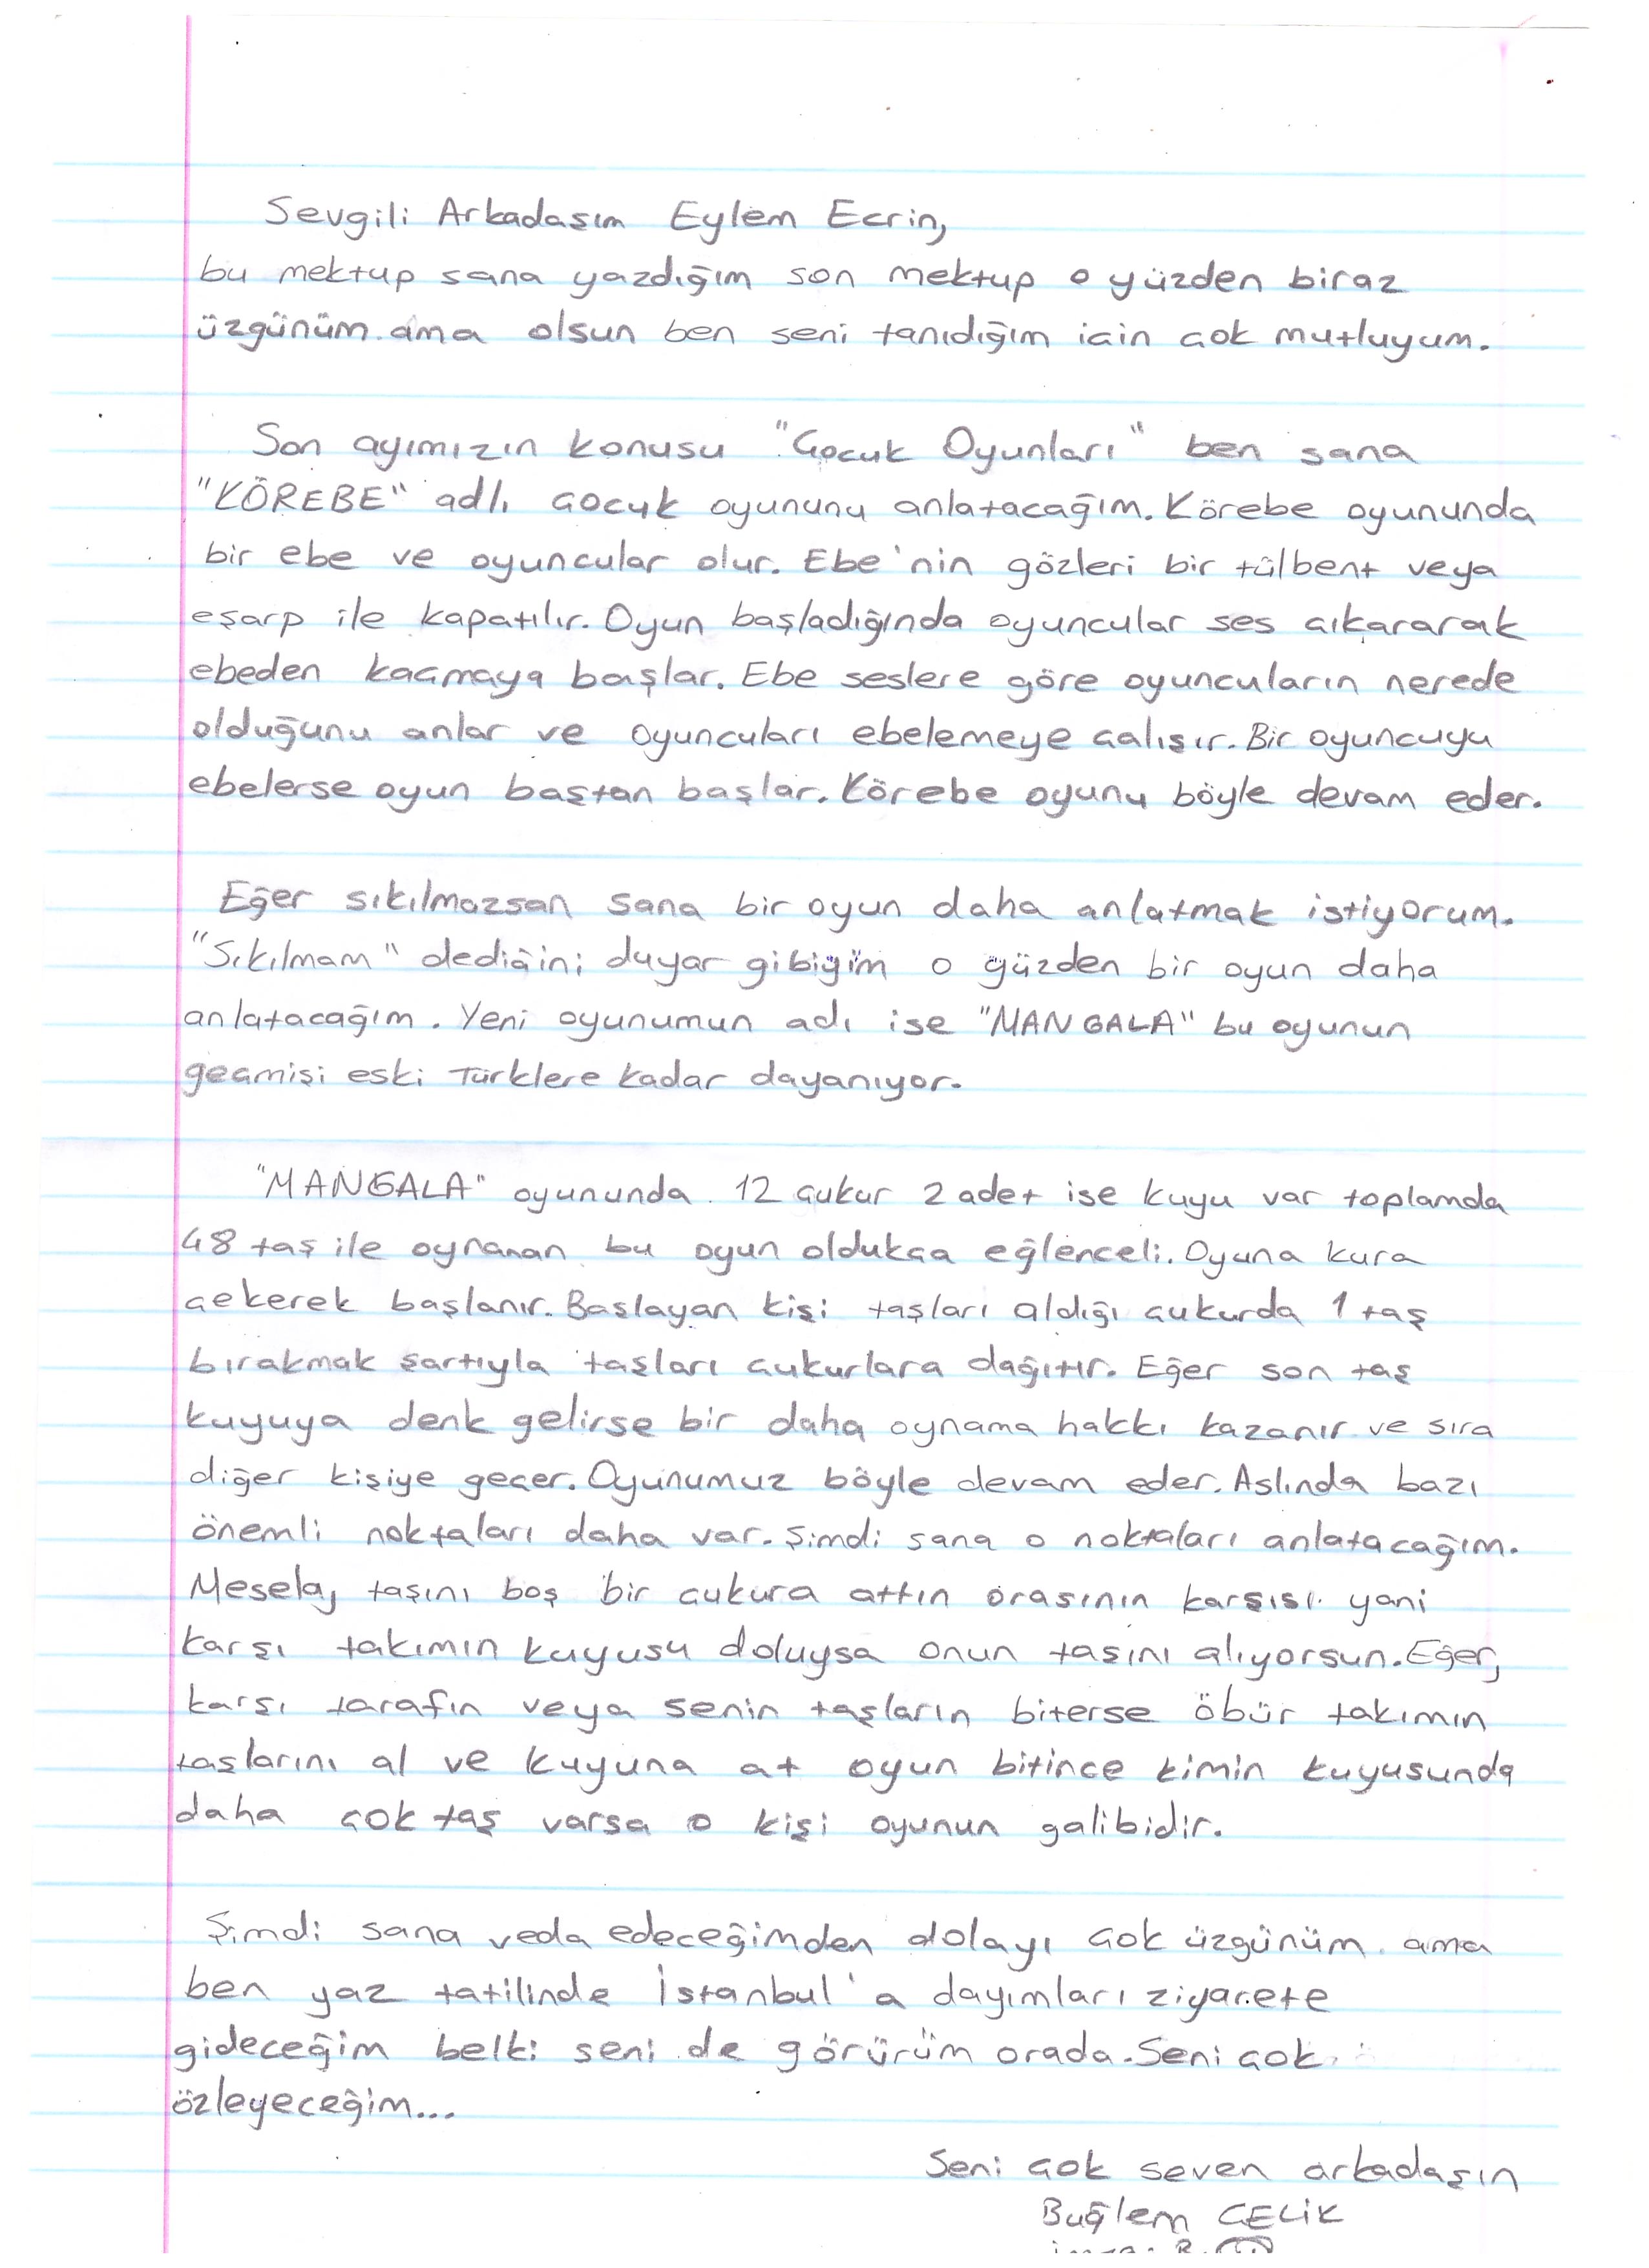 Sevgili Arkadaşım Eylem Ecrin,
bu mektup sana yazdığım son mektup o yüzden biraz
üzgünüm ama olsun ben seni tanıdığım için çok mutluyum.
Son ayımızın konusu "Çocuk Oyunları" ben sana
"KÖREBE" adlı çocuk oyununu anlatacağım. Körebe oyununda
bir ebe ve oyuncular olur. Ebe'nin gözleri bir tülbent veya
eşarp ile kapatılır. Oyun başladığında oyuncular ses çıkararak
ebeden kaçmaya başlar. Ebe seslere göre oyuncuların nerede
olduğunu anlar ve oyuncuları ebelemeye çalışır. Bir oyuncuyu
ebelerse oyun baştan başlar. Körebe oyunu böyle devam eder.
Eğer sıkılmazsan sana bir oyun daha anlatmak istiyorum.
"Sıkılmam" dediğini duyar gibiyim o yüzden bir oyun daha
anlatacağım. Yeni oyunumun adı ise "MANGALA" bu oyunun
geçmişi eski Türklere kadar dayanıyor.
"MANGALA" oyununda 12 çukur 2 adet ise kuyu var toplamda
48 taş ile oynanan bu oyun oldukça eğlenceli. Oyuna kura
çekerek başlanır. Başlayan kişi taşları aldığı çukurda 1 taş
bırakmak şartıyla taşları çukurlara dağıtır. Eğer son taş
kuyuya denk gelirse bir daha oynama hakkı kazanır ve sıra
diğer kişiye geçer. Oyunumuz böyle devam eder. Aslında bazı
önemli noktaları daha var. Şimdi sana o noktaları anlatacağım.
Mesela, taşını boş bir çukura attın orasının karşısı yani
karşı takımın kuyusu doluysa onun taşını alıyorsun. Eğer,
karşı tarafın veya senin taşların biterse öbür takımın
taşlarını al ve kuyuna at oyun bitince kimin kuyusunda
daha çok taş varsa o kişi oyunun galibidir.
Şimdi sana veda edeceğimden dolayı çok üzgünüm ama
ben yaz tatilinde İstanbul'a dayımları ziyarete
gideceğim belki seni de görürüm orada. Seni çok
özleyeceğim...
Seni çok seven arkadaşın
Buğlem ÇELİK